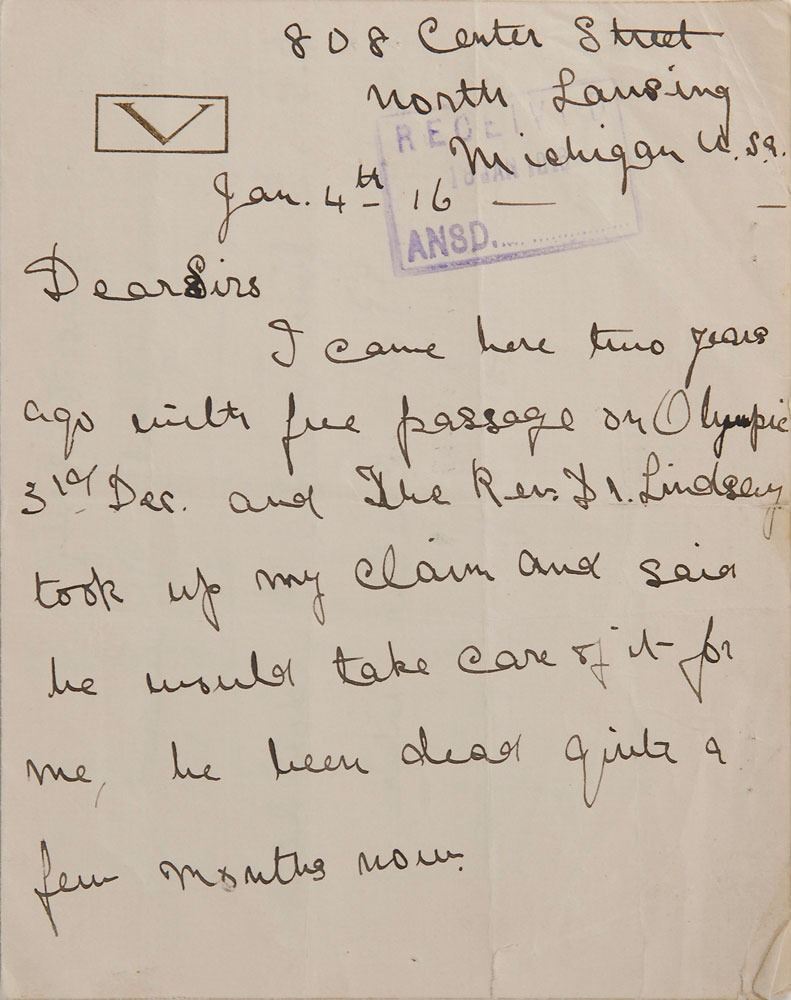 808 Center Street
North Lansing
Michigan U.S.A.
V
RECEIVED
JAN
ANSD.
Jan. 4th 16 —
Dear Sirs
I came here two years
ago with free passage on Olympic
3rd Dec. and The Rev. Dr. Lindsay
took up my claim and said
he would take care of it for
me, he been dead quite a
few months now.